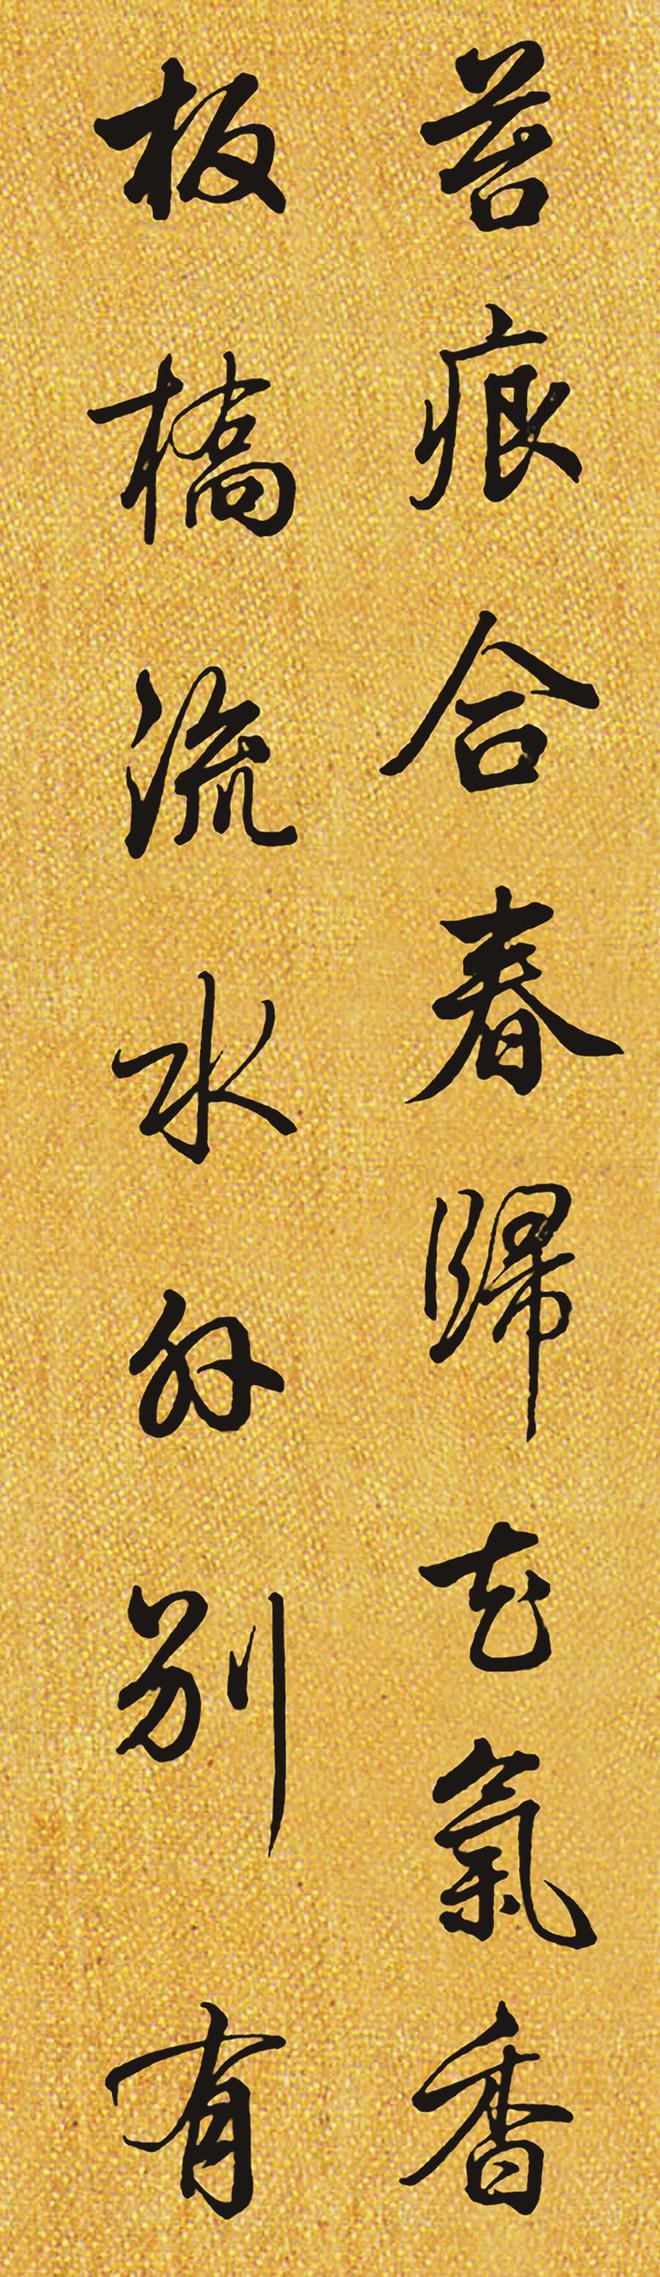 苔痕合春歸花氣香
板橋流水外別有